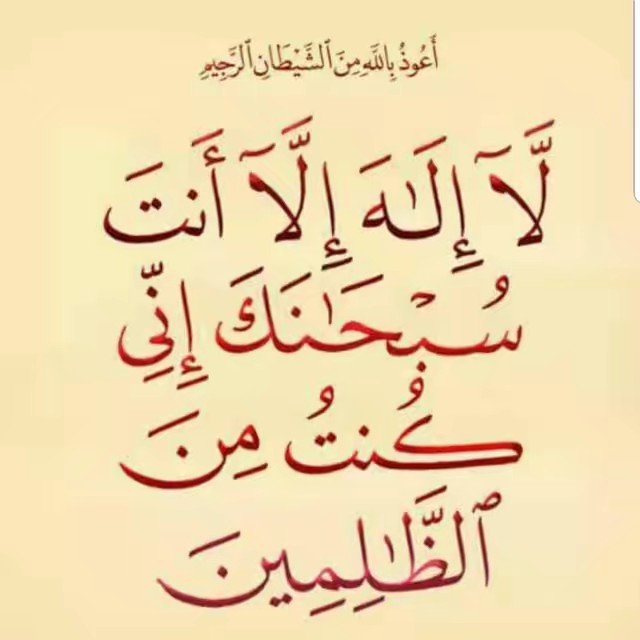 أَعُوذُ بِاللَّهِ مِنَ ٱلشَّيْطَانِ ٱلرَّجِيمِ
لَّآ إِلَـٰهَ إِلَّآ أَنتَ
سُبْحَـٰنَكَ إِنِّي
كُنتُ مِنَ
ٱلظَّـٰلِمِينَ